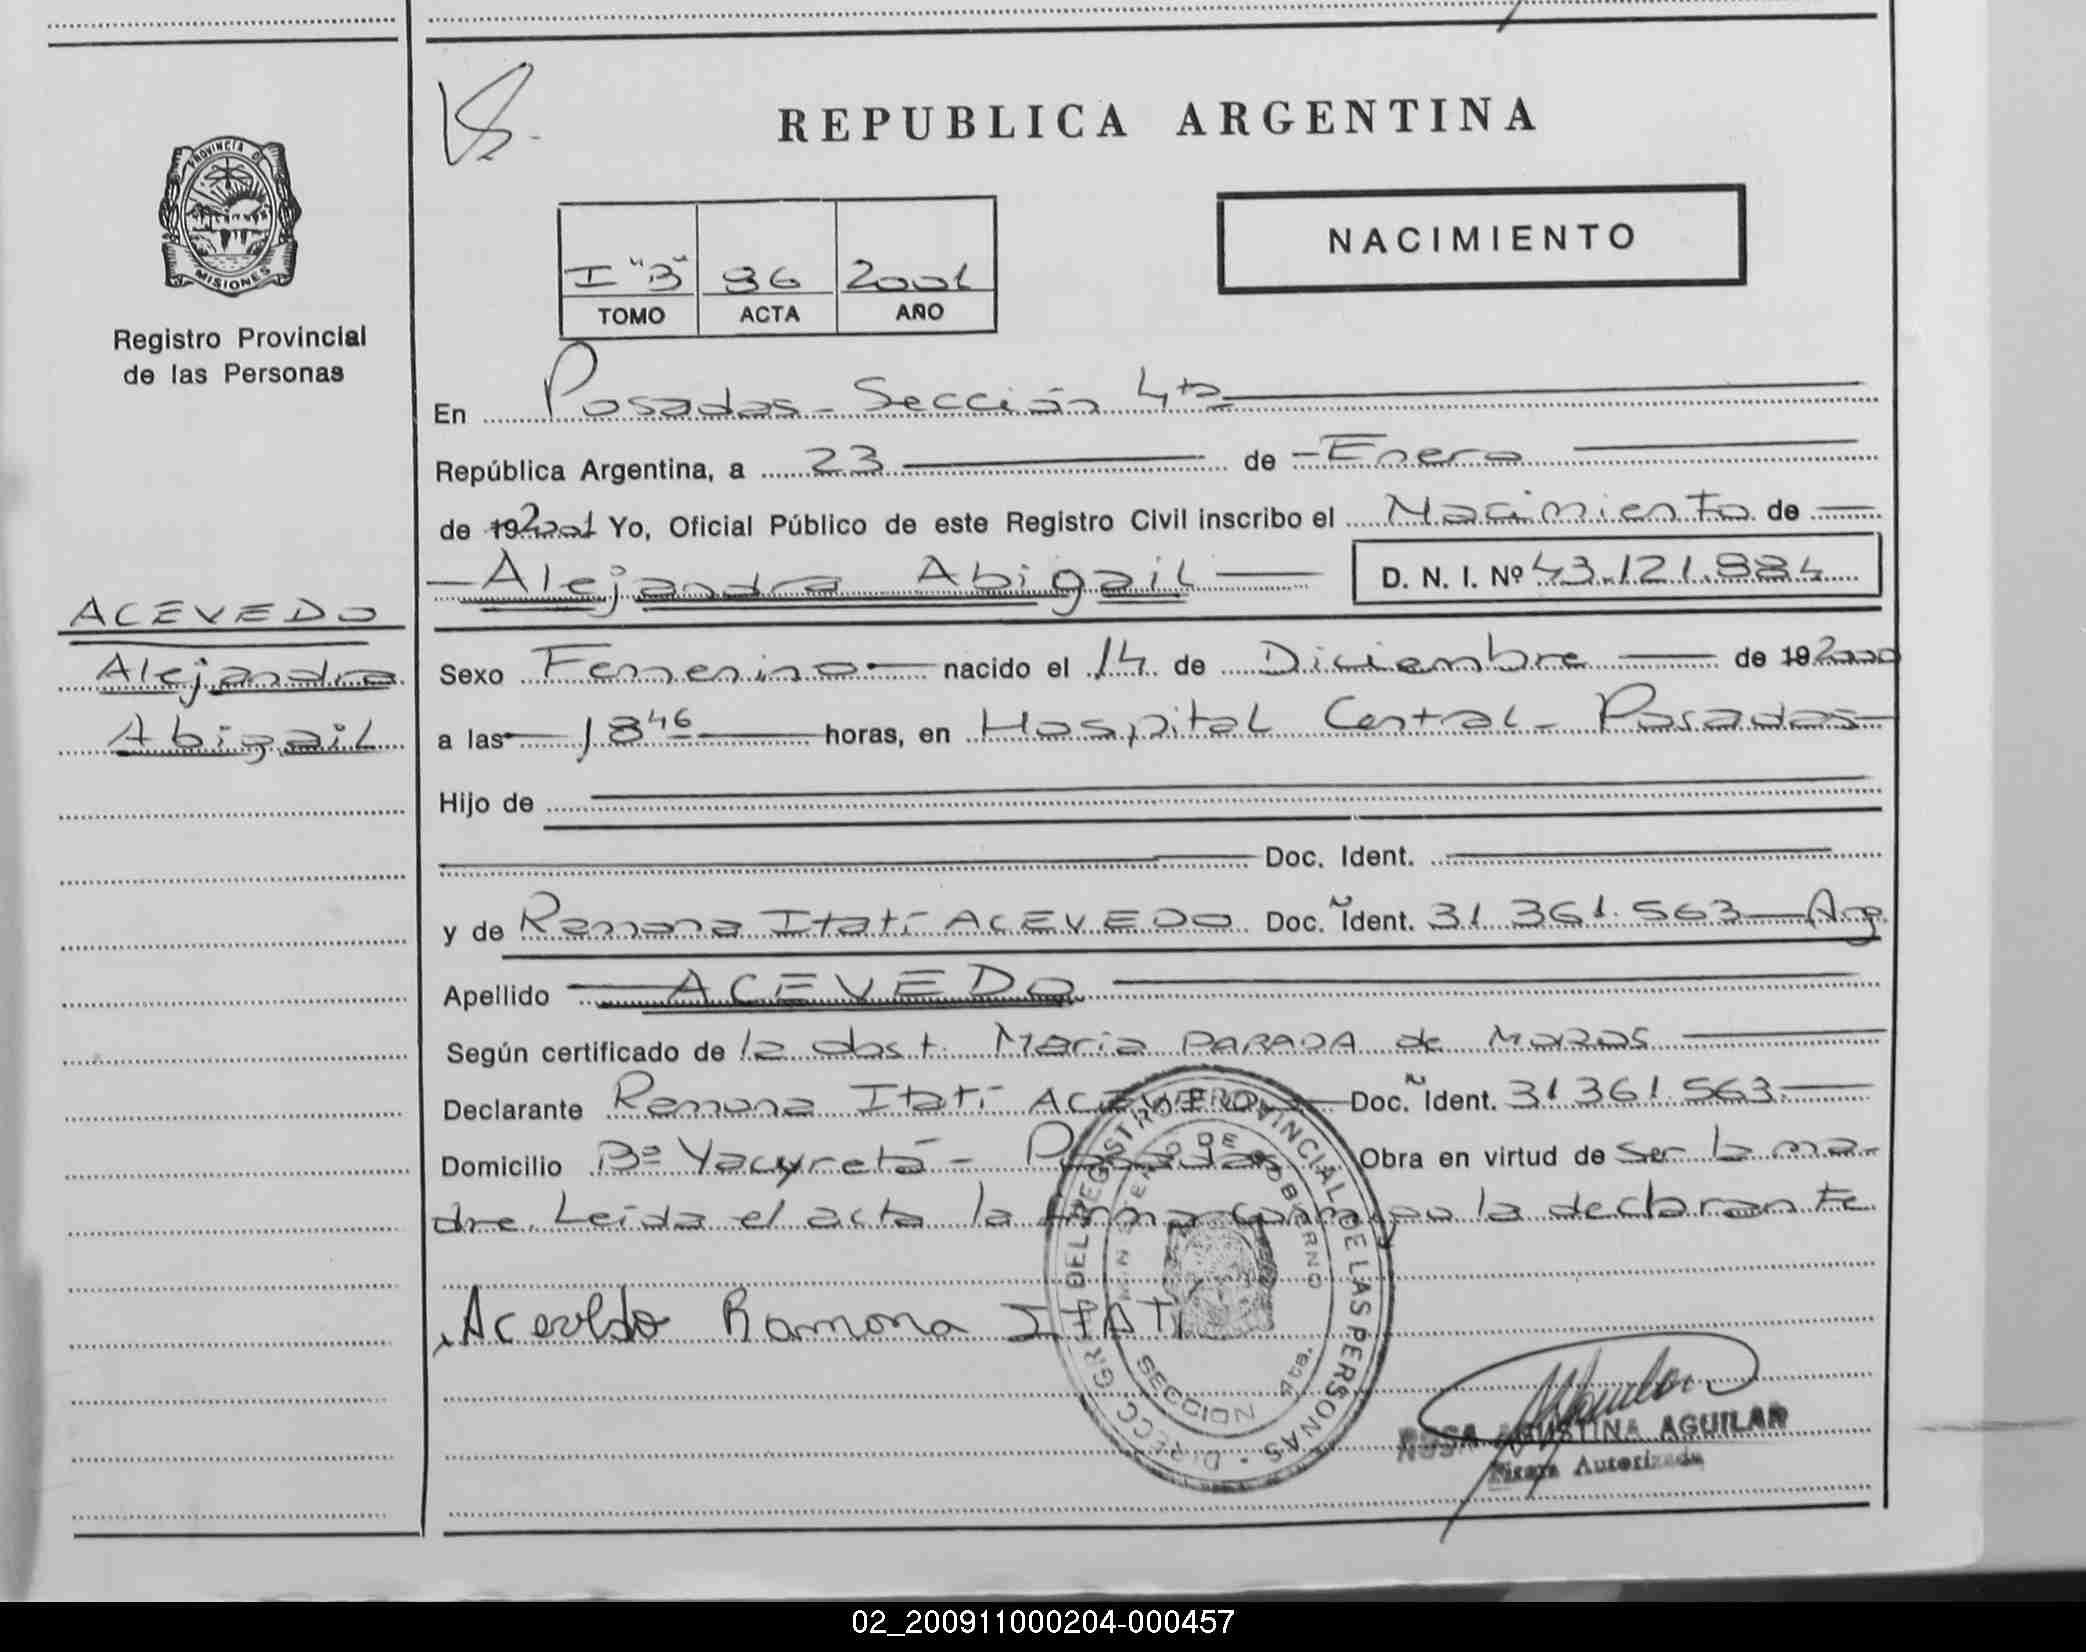 REPUBLICA ARGENTINA
PROVINCIA DE
MISIONES
Registro Provincial
de las Personas
NACIMIENTO
I "B" 96 2001
TOMO ACTA AÑO
En Posadas - Sección 4ta
República Argentina, a 23 de Enero
de 192001 Yo, Oficial Público de este Registro Civil inscribo el Nacimiento de
Alejandra Abigail D. N. I. Nº 43.121.884
ACEVEDO
Alejandra
Abigail
Sexo Femenino nacido el 14 de Diciembre de 192000
a las 18 46 horas, en Hospital Central - Posadas
Hijo de
Doc. Ident.
y de Ramona Itatí ACEVEDO Doc. Ident. 31.361.563 Arg.
Apellido ACEVEDO
Según certificado de la obst. Maria PARADA de
Declarante Ramona Itatí ACEVEDO Doc. Ident. 31361.563
Domicilio Bº Yacyretá - Posadas Obra en virtud de ser la ma-
dre. Leída el acta la firma conmigo la declarante
Acevedo Ramona ITATI
DIRECC GR DEL REGISTRO PROVINCIAL DE LAS PERSONAS
MINISTERIO DE GOBIERNO
SECCION 4ta.
ROSA AGUSTINA AGUILAR
Firma Autorizada
02_200911000204-000457